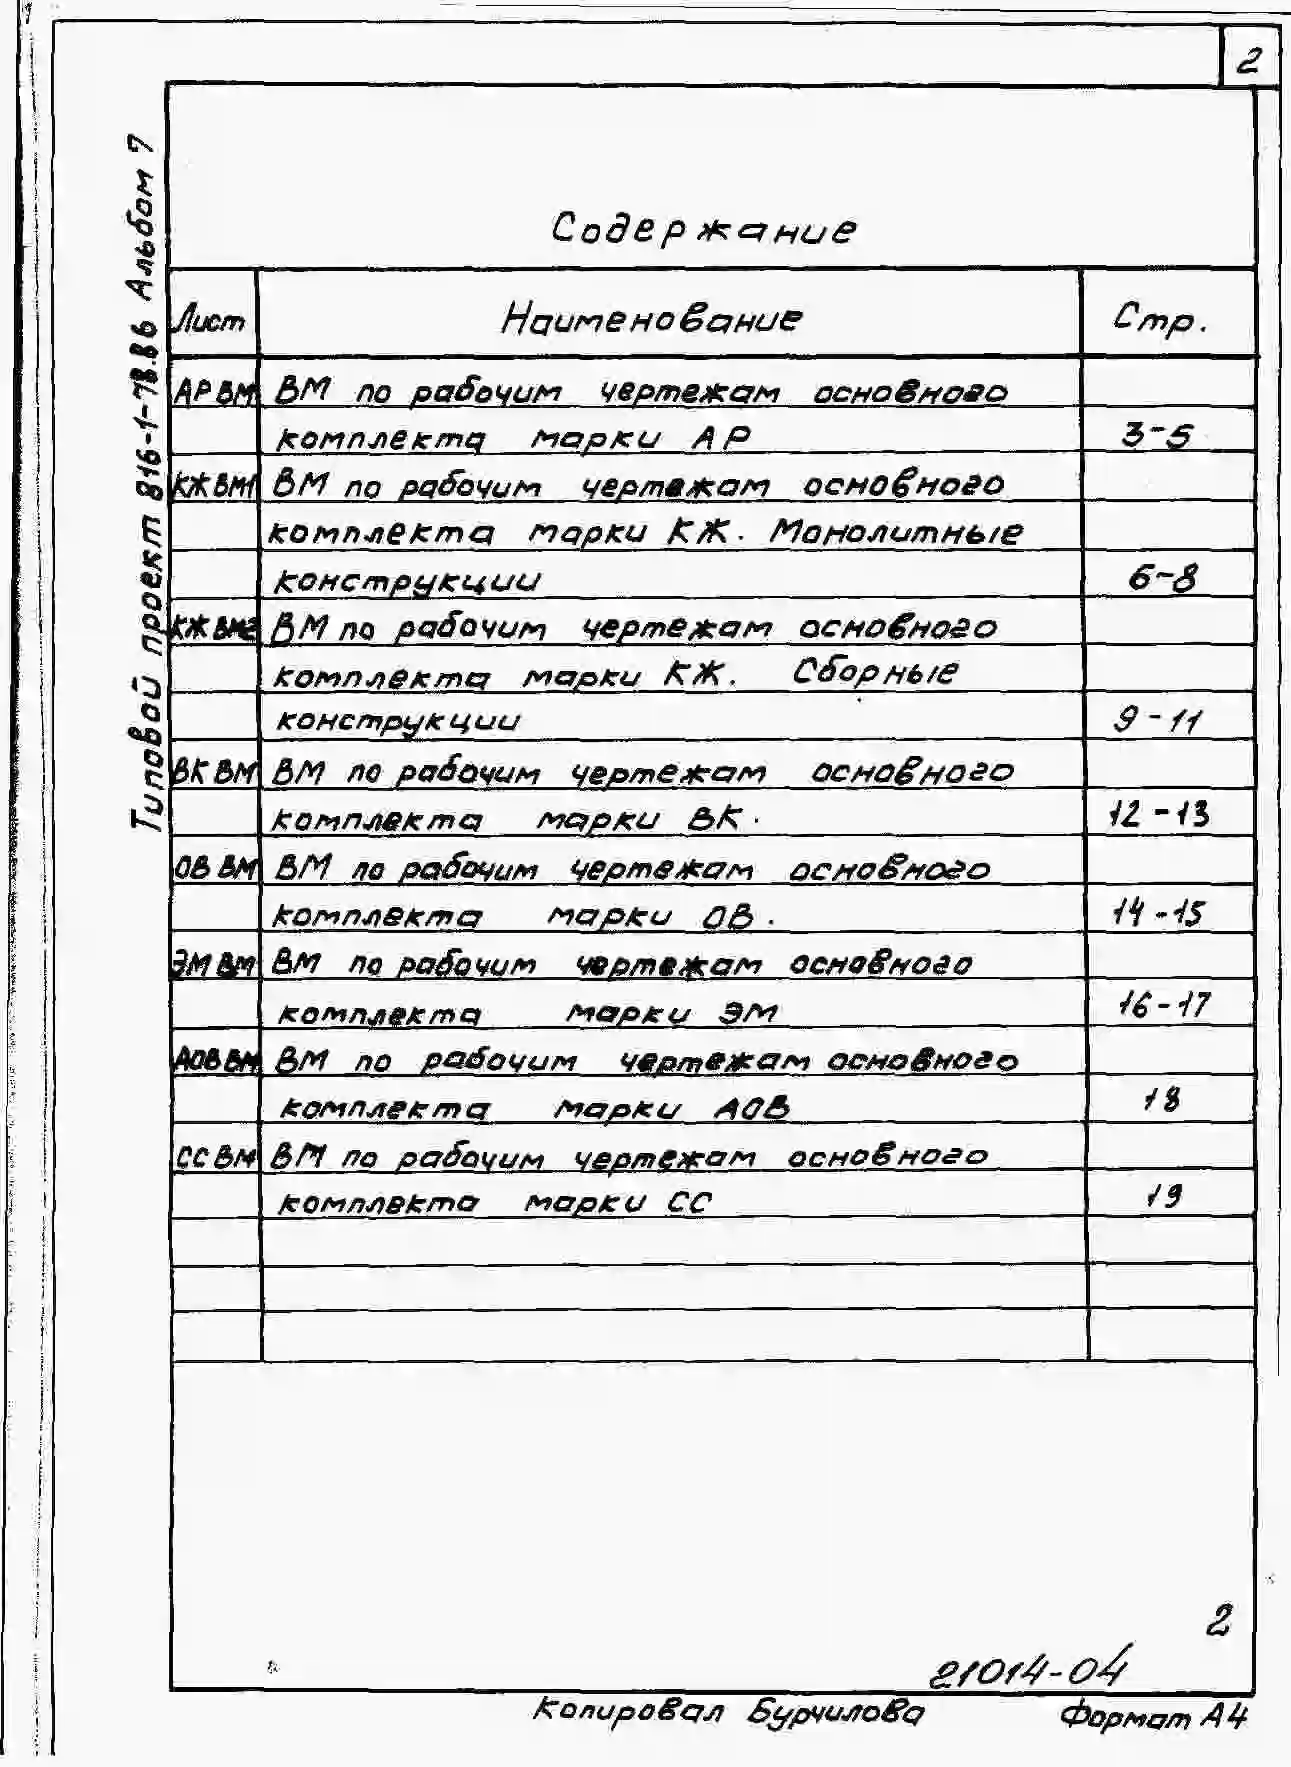 2
Типовой проект 816-1-78.86 Альбом 7
Содержание
Лист Наименование Стр.
АР ВМ ВМ по рабочим чертежам основного
комплекта марки АР 3-5
КЖ ВМ1 ВМ по рабочим чертежам основного
комплекта марки КЖ. Монолитные
конструкции 6-8
КЖ ВМ2 ВМ по рабочим чертежам основного
комплекта марки КЖ. Сборные
конструкции 9-11
ВК ВМ ВМ по рабочим чертежам основного
комплекта марки ВК. 12-13
ОВ ВМ ВМ по рабочим чертежам основного
комплекта марки ОВ. 14-15
ЭМ ВМ ВМ по рабочим чертежам основного
комплекта марки ЭМ 16-17
АОВ ВМ ВМ по рабочим чертежам основного
комплекта марки АОВ 18
СС ВМ ВМ по рабочим чертежам основного
комплекта марки СС 19
2
21014-04
Копировал Бурчилова Формат А4